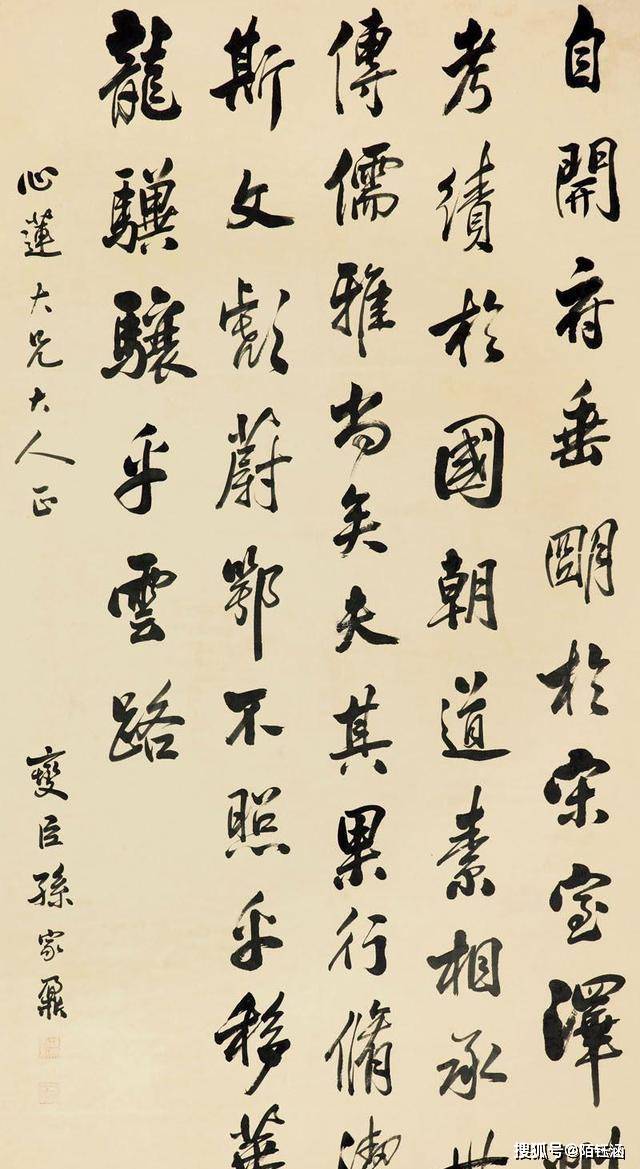 自開府垂朙於宋室澤
考績於國朝道素相承世
傳儒雅尚矣夫其果行脩
斯文彪蔚鄂不照乎移華
龍驥驤乎雲路
心蓮大兄大人正
燮臣孫家鼐
搜狐号@陌钰涵